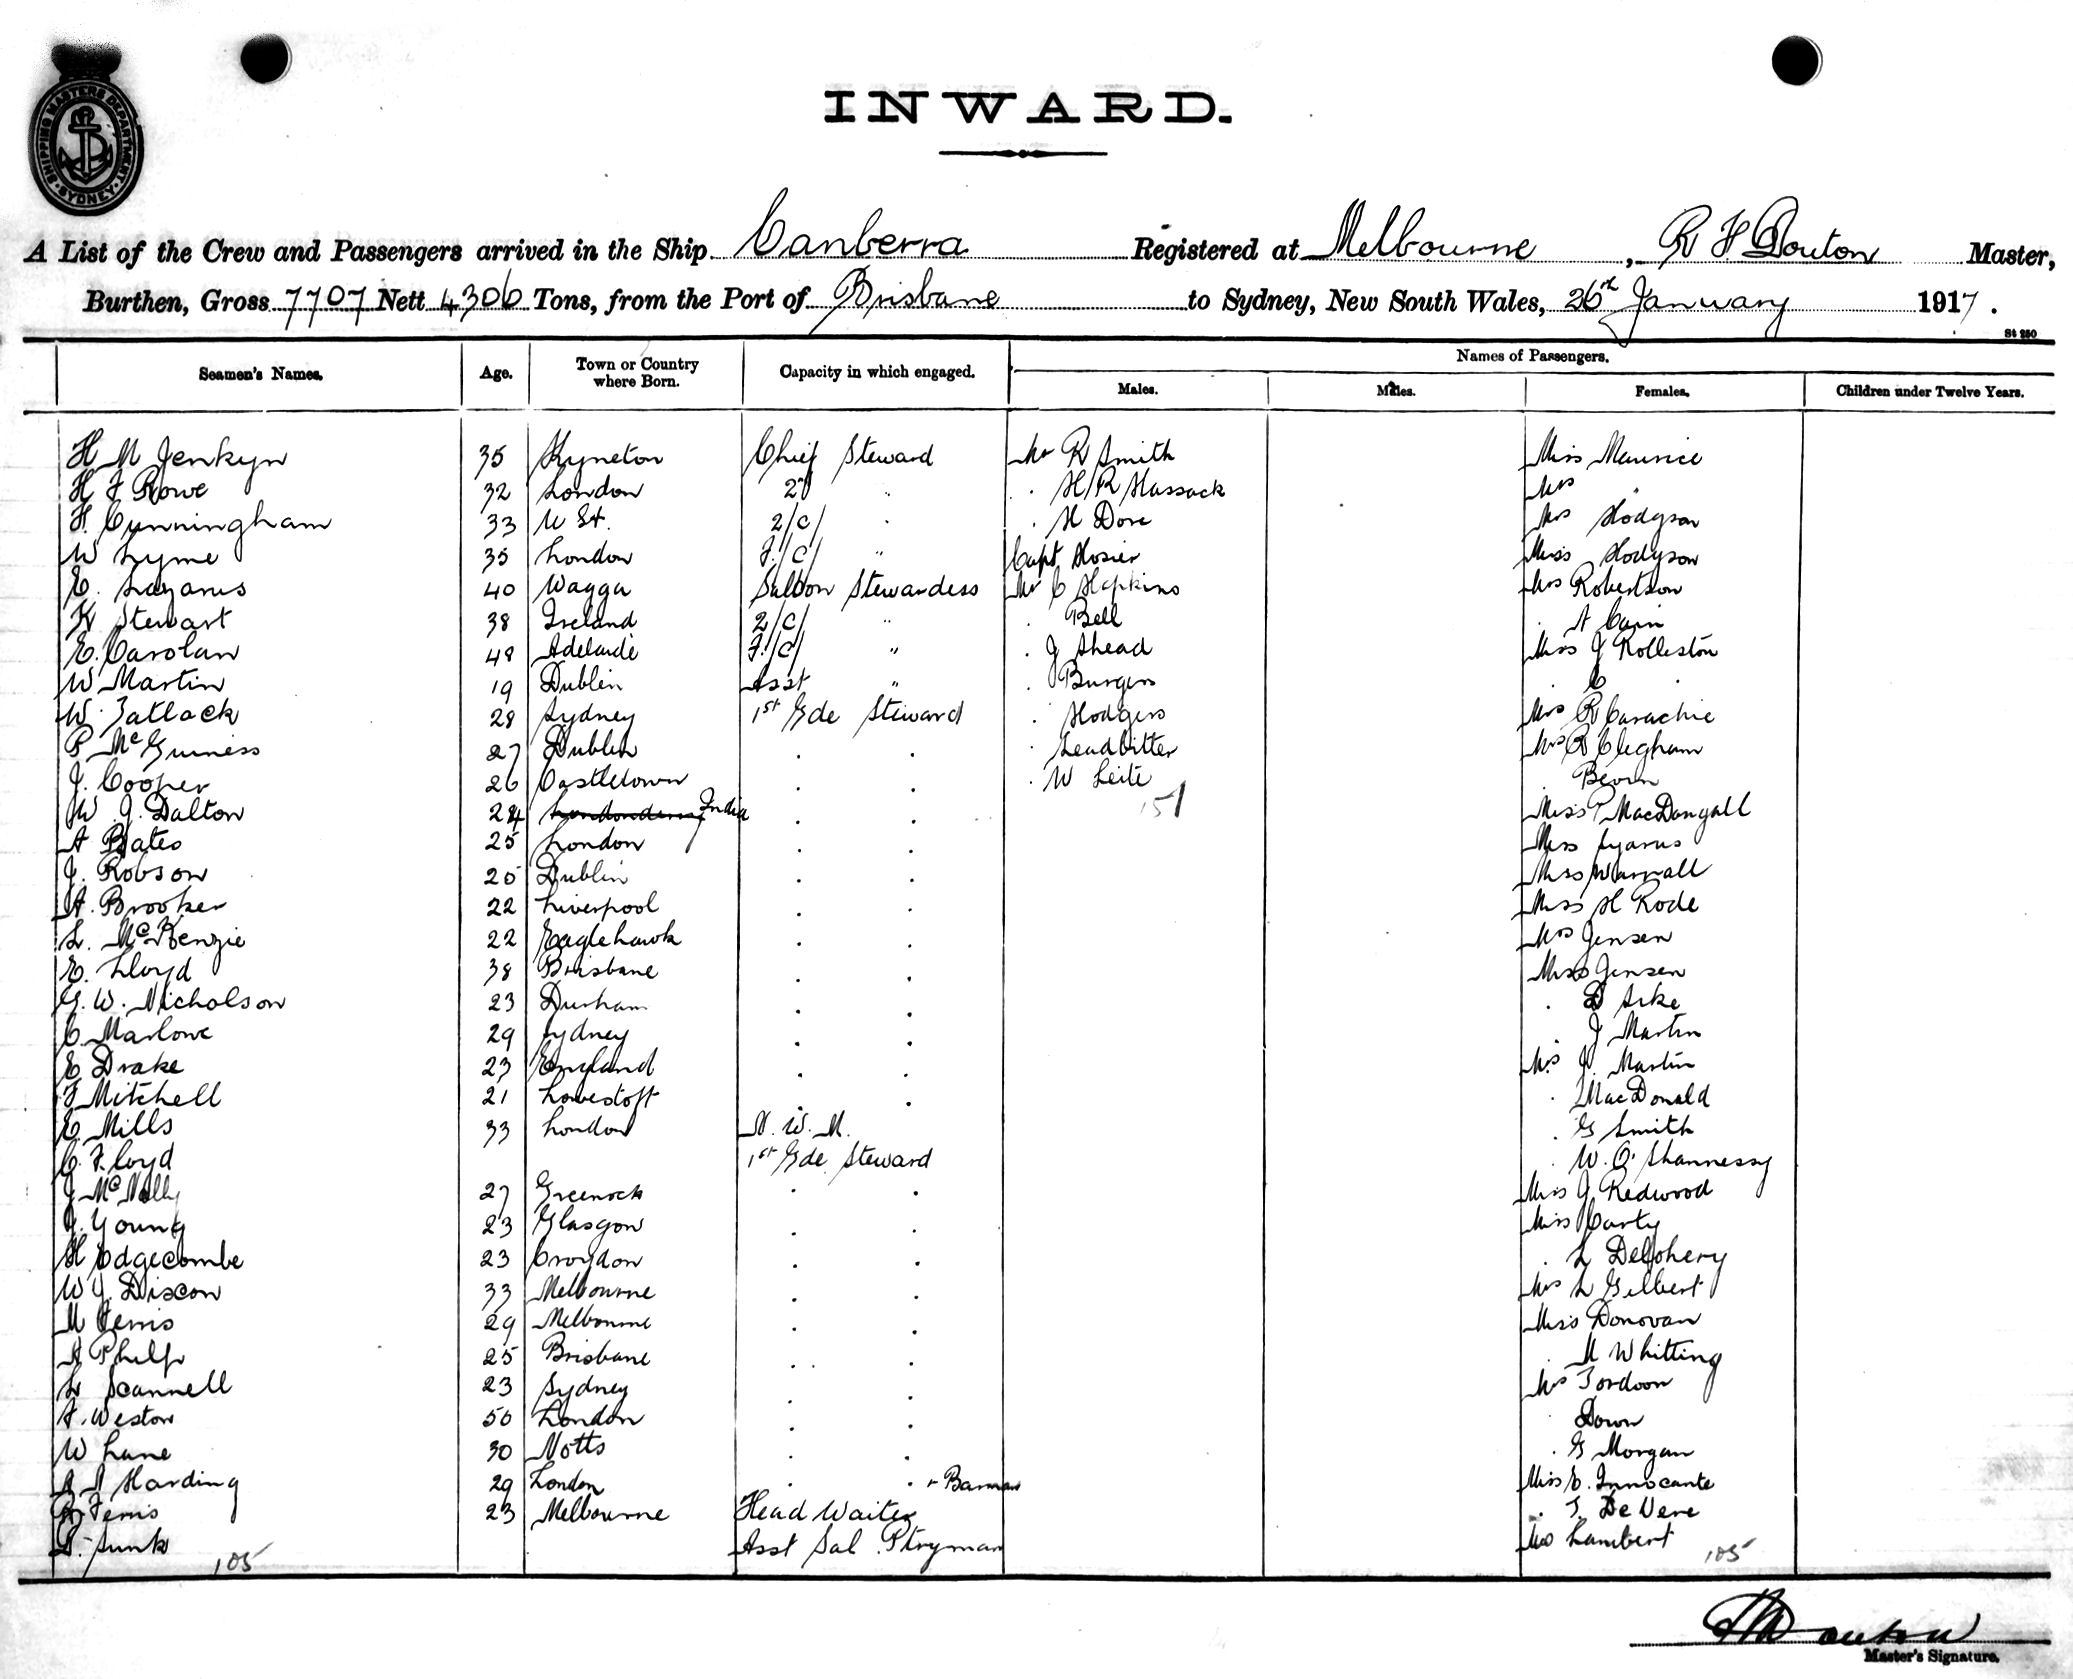 SHIPPING MASTERS DEPARTMENT SYDNEY
INWARD.
A List of the Crew and Passengers arrived in the Ship Canberra Registered at Melbourne, R F Douton Master,
Burthen, Gross 7707 Nett 4306 Tons, from the Port of Brisbane to Sydney, New South Wales, 26th January 1917.
St 250
Seamen's Names. Age. Town or Country where Born. Capacity in which engaged. Names of Passengers.
Males. Males. Females. Children under Twelve Years.
H M Jenkyn 35 Kyneton Chief Steward Mr R Smith Miss Maurice
H F Rowe 32 London 2nd " . H R Hassack Mrs "
F. Cunningham 33 W St. 2/C/ " . H Dore Mrs Hodgson
W Lyme 35 London F./C/ " Capt Hosier Miss Hodgson
E. Lazarus 40 Wagga Saloon Stewardess Mr C Hopkins Mrs Robertson
K Stewart 38 Ireland 2/C/ " . Bell . A Cain
E. Carolan 48 Adelaide F./C/ " . J Shead Miss J Rolleston
W Martin 19 Dublin Asst " . Burgess . C .
W. Tatlock 28 Sydney 1st Gde Steward . Hodgers Mrs R Carachie
P McGuiness 27 Dublin . . . Leadbitter Mrs R Clegham
J. Cooper 26 Castletown . . . W Leite . Bevin
W. J. Dalton 24 Londonderry India . . 151 Miss P MacDougall
A Bates 25 London . . Miss Lyarus
J. Robson 25 Dublin . . Miss Warrall
A. Brooker 22 Liverpool . . Miss H Rode
L. McKenzie 22 Eaglehawk . . Mrs Jensen
E. Lloyd 38 Brisbane . . Miss Jensen
G. W. Nicholson 23 Durham . . . D Arke
C. Marlowe 29 Sydney . . . J Martin
E Drake 23 England . . Mrs J. Martin
F Mitchell 21 Lowestoft . . . MacDonald
E. Mills 33 London N. W. M. . G Smith
C. Floyd 1st Gde Steward . W. O'Shannessy
J McNally 27 Greenock . . Miss J Redwood
J. Young 23 Glasgow . . Miss Carty
H Edgecombe 23 Croydon . . . L Delohery
W J. Discon 33 Melbourne . . Mrs L Gilbert
M Ferris 29 Melbourne . . Miss Donovan
A Philp 25 Brisbane . . . M Whitting
L Scannell 23 Sydney . . Mrs Tordoon
F. Weston 50 London . . . Down
W Lane 30 Notts . . . G Morgan
A Harding 29 London . . - Barman Miss E. Innocante
R Ferris 23 Melbourne Head Waiter . T. De Vere
Sunk Asst Sal. Ptryman Mrs Lambert
105 105
Master's Signature.